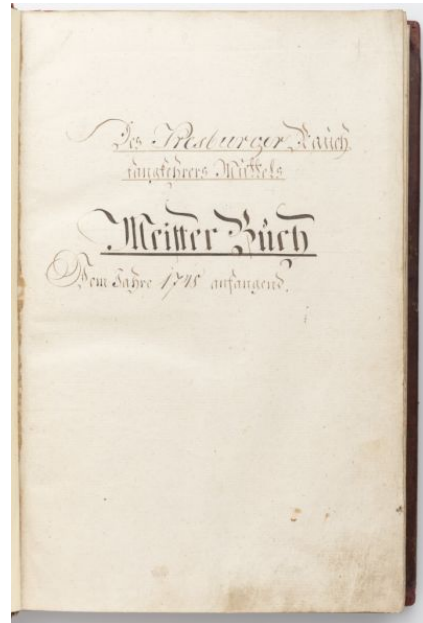 Des Presburger Rauch
fangkehrers Mittels
Meister Buch
Vom Jahre 1748 anfangend.